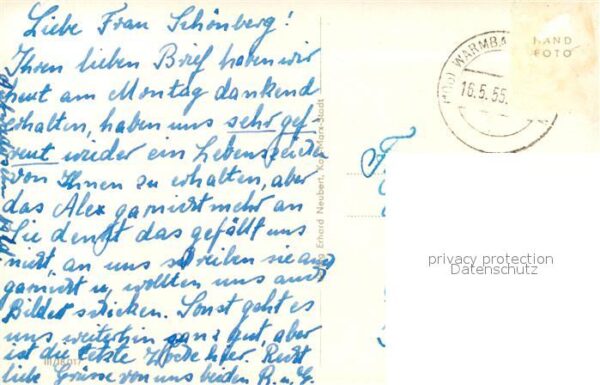 Liebe Frau Schönberg!
Ihren lieben Brief haben wir
heut am Montag dankend
erhalten, haben uns sehr gef-
reut wieder ein Lebenszeichen
von Ihnen zu erhalten, aber
das Alex garnicht mehr an
Sie denkt das gefällt uns
nicht, an uns schreiben sie auch
garnicht u, wollten uns auch
Bilder schicken. Sonst geht es
uns weiterhin ganz gut, aber
ist die letzte Woche hier. Recht
liebe Grüsse von uns beiden R. u. G.
III/18/17
Erhard Neubert, Karl-Marx-Stadt
WARMBA
16.5.55.
HAND
FOTO
privacy protection
Datenschutz